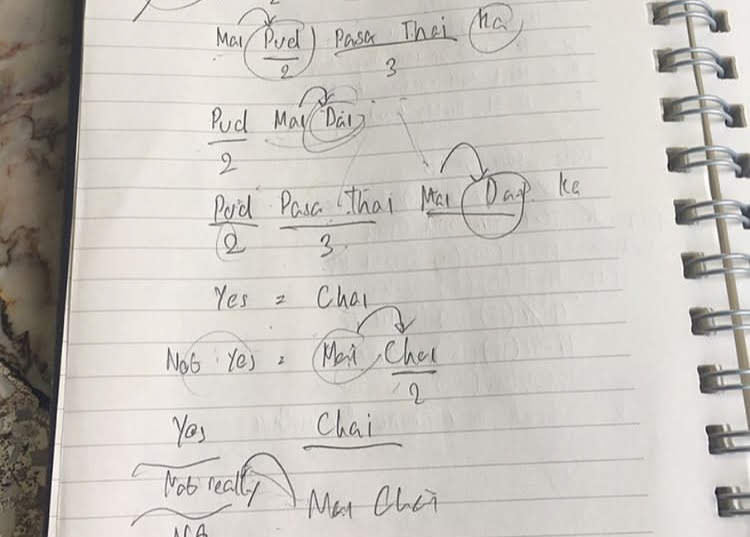 Mai Pud Pasa Thai Ka
2 3
Pud Mai Dai
2
Pud Pasa Thai Mai Dai Ka
2 3
Yes = Chai
Not Yes = Mai Chai
2
Yes Chai
Not really Mai Chai